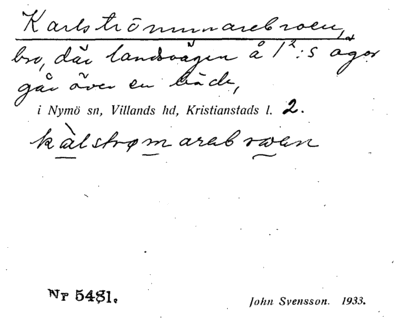 Karlströmmarebroen,
bro, där landsvägen å 1²:s ägor
går över en bäck,
i Nymö sn, Villands hd, Kristianstads l. 2.
kàlstrømarebroen
Nr 5481.
John Svensson. 1933.